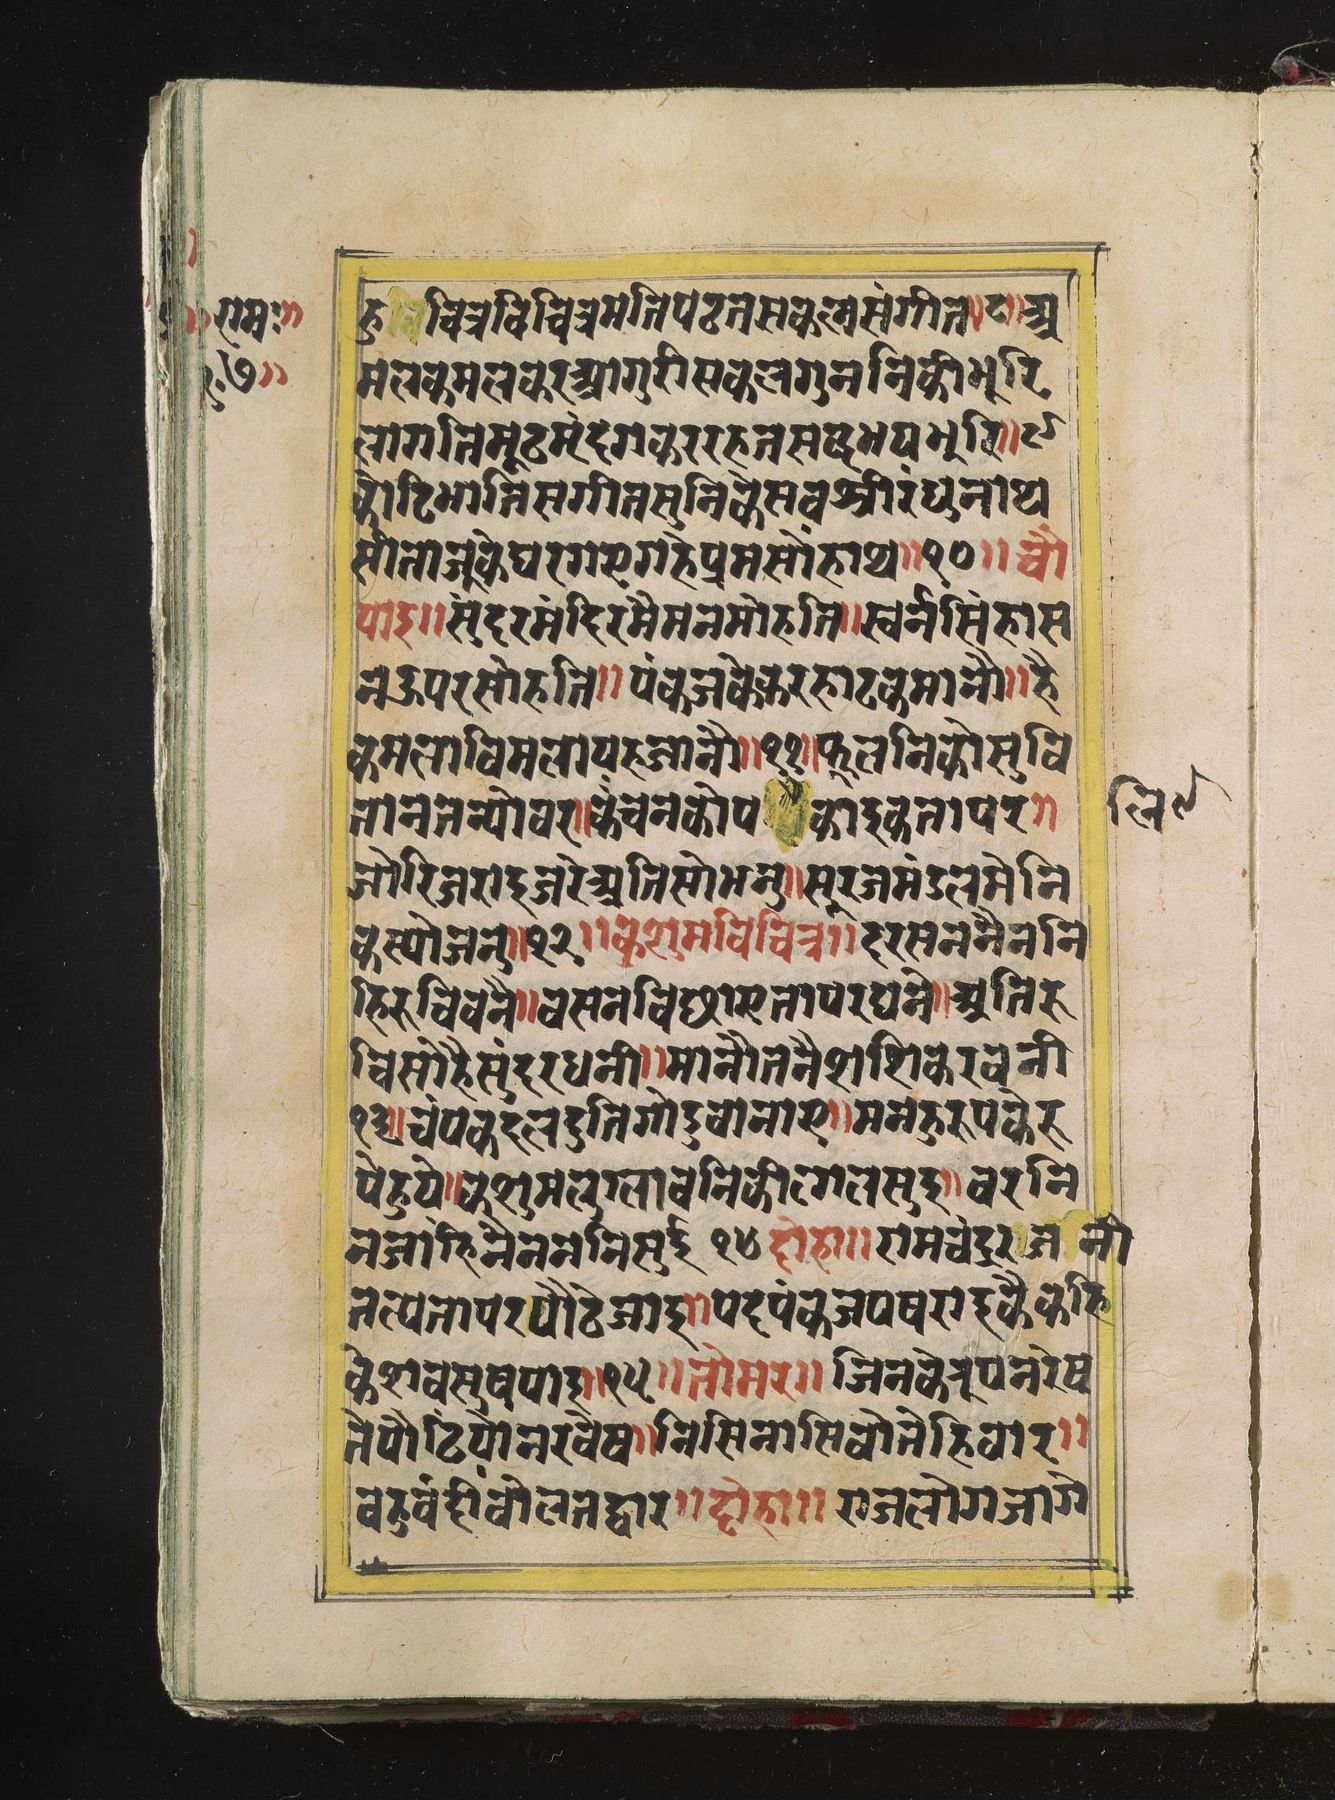 हु चित्रविचित्रमतिपढतसकलसंगीत॥८॥अ
मलकमलकरआगुरीसकलगुननिकीभूरि
लागतिमूढमृंदगकररहतसब्दभयभूरि॥९
कोटिभातिसगीतसुनिकेसवश्रीरंघुनाथ
सीताजूकेघरगएगहेप्रमसोंहाथ॥१०॥चौ
पाइ॥सुंदरमंदिरमैमनमोहति॥स्वर्नसिंहास
नऊपरसोहति॥पंकजकेकरहाटकमानौ॥है
कमलाविमलायहजानौ॥११॥फूलनिकोसुवि
तानतन्योवर॥कंचनकोप कोइकतापर॥
जोरिजराइजरेअतिसोभनु॥सूरजमंडलमेनि
कस्योजनु॥१२॥कुशुमविचित्र॥दरसतनैननि
हिरुचिवनै॥वसनविछाएतापरघनै॥अतिरु
चिसोहैसुंदरधनी॥मानौतनैशशिकरवनी
१३॥चंपकदलदुतिगोडुवानाए॥मनहुरुपकेरु
पैहुये॥कुशुमलुगुलावनिकीगेलसुइ॥वरनि
नजांहिनैनननिसुई १४ दोहा॥रामचंदुर जनी
तल्पतापरपौढेजाइ॥पदपंकजपषराइकैकहि
केशवसुषपाइ॥१५॥तोमर॥जिनकेनृपनरेष
तेपौढिपौनरवैष॥निसिनासिवोतेहिवार॥
वहुवंदीवोलतद्वार॥दोहा॥राजलोगजागे
रामः॥
७॥
लि